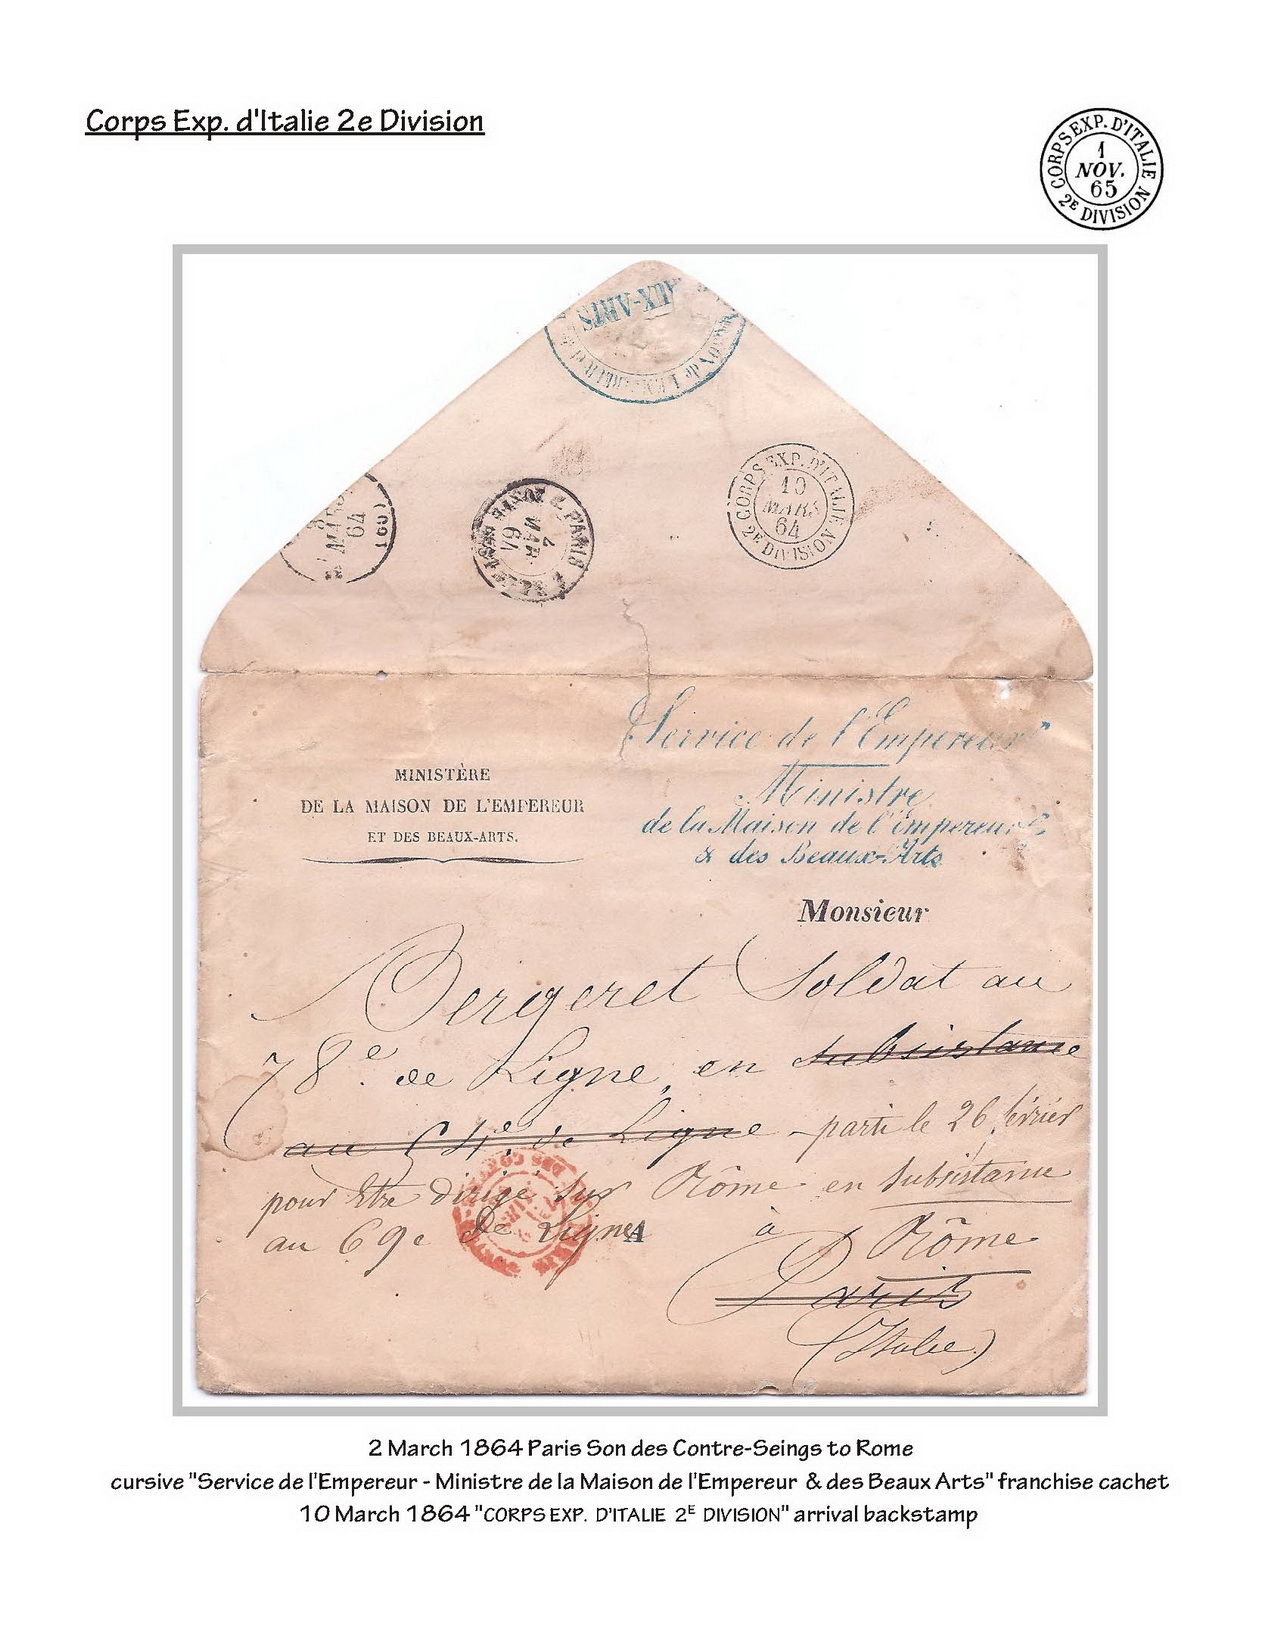 Corps Exp. d'Italie 2e Division
CORPS EXP. D'ITALIE
1
NOV.
65
2E DIVISION
AUX-ARTS
de L'EMPEREUR et
MARS
64
(60)
PARIS
4
MARS
64
CORPS EXP. D'ITALIE
10
MARS
64
2E DIVISION
Service de l'Empereur
MINISTÈRE
DE LA MAISON DE L'EMPEREUR
ET DES BEAUX-ARTS.
Ministre
de la Maison de l'Empereur
& des Beaux-Arts
Monsieur
Bergeret Soldat au
78e de Ligne, en subsistance
au 64e de Ligne - parti le 26 février
pour être dirigé sur Rôme en subsistance
au 69e de Ligne A
à Rôme
Paris
(Italie)
2 March 1864 Paris Son des Contre-Seings to Rome
cursive "Service de l'Empereur - Ministre de la Maison de l'Empereur & des Beaux Arts" franchise cachet
10 March 1864 "CORPS EXP. D'ITALIE 2E DIVISION" arrival backstamp